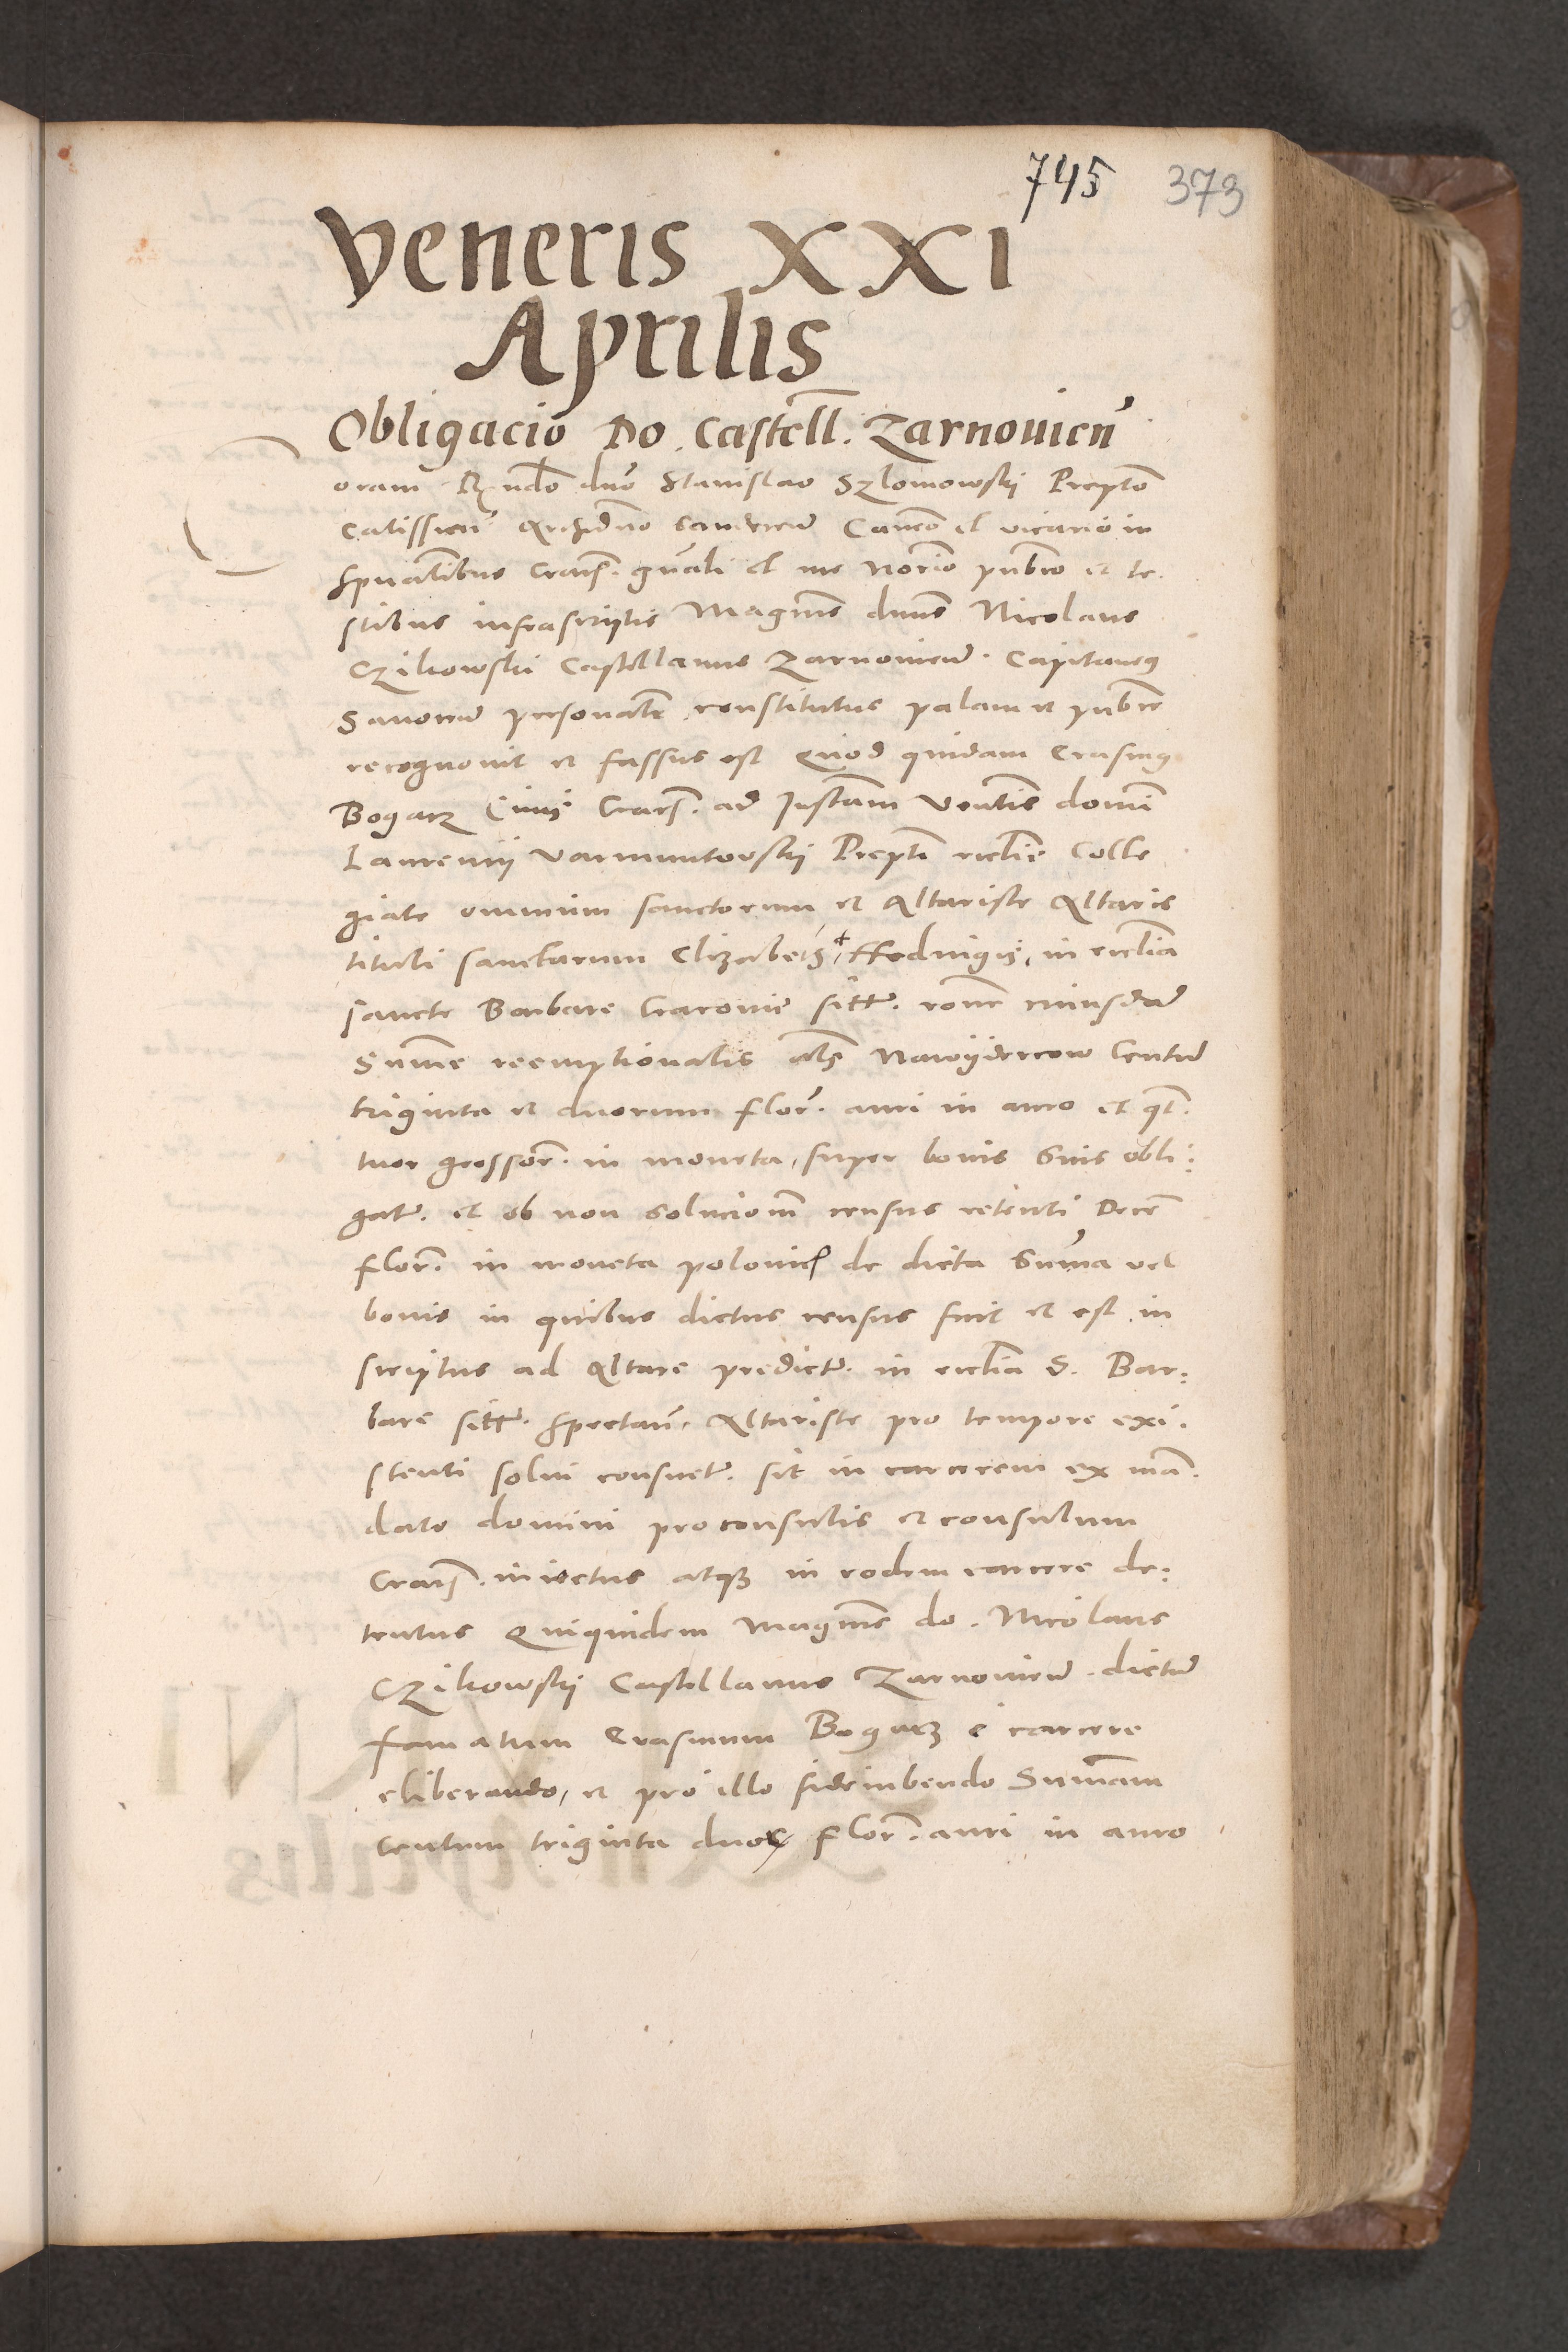 745 373
Veneris XXI
Aprilis
Obligacio Do. Castell. Zarnouien
oram Rndo dno Stanislao Szlomowskj Prepto
Calissien Archidno Sandecien Canco et vicario in
spualibus Cracn. gnali et me Norio publico et te-
stibus infrascriptis Magcus dnus Nicolaus
Czikowskj Castellanus Zarnouien. Capitaneus
Sanocen personalr constitutus palam et publice
recognouit et fassus est Quod quidam Erasmus
Bogacz Ciuis Cracn. ad Instam Ventis domi
Laurentij Varmuntowskij Prepti ecclie Colle
giate omnium sanctorum et Altariste Altaris
tituli sanctarum Elizabeth + Heduigis, in ecclia
Sancte Barbare Cracouie sitt. rone cuiusdam
Summe reemptionalis als Nawyderkow Centum
triginta et duorum flor. auri in auro et qt.
tuor grossor. in moneta, super bonis suis obli:
gat. et ob non solucionem census retenti Decem
flor. in moneta polonicl de dicta Summa vel
bonis in quibus dictus census fuit et est in
scriptus ad Altare predict. in ecclia S. Bar:
bare sitt. spectan. Altariste pro tempore exi-
stenti solui consuet. sit in carcerem ex man-
dato domini proconsulis et consulum
Cracn. iniectus atque in eodem carcere de:
tentus Quiquidem Magcus do. Nicolaus
Czikowskij Castellanus Zarnouien. dictum
famatum Erasmum Bogacz e carcere
eliberando, et pro illo fideiubendo Summam
Centum triginta duor flor. auri in auro